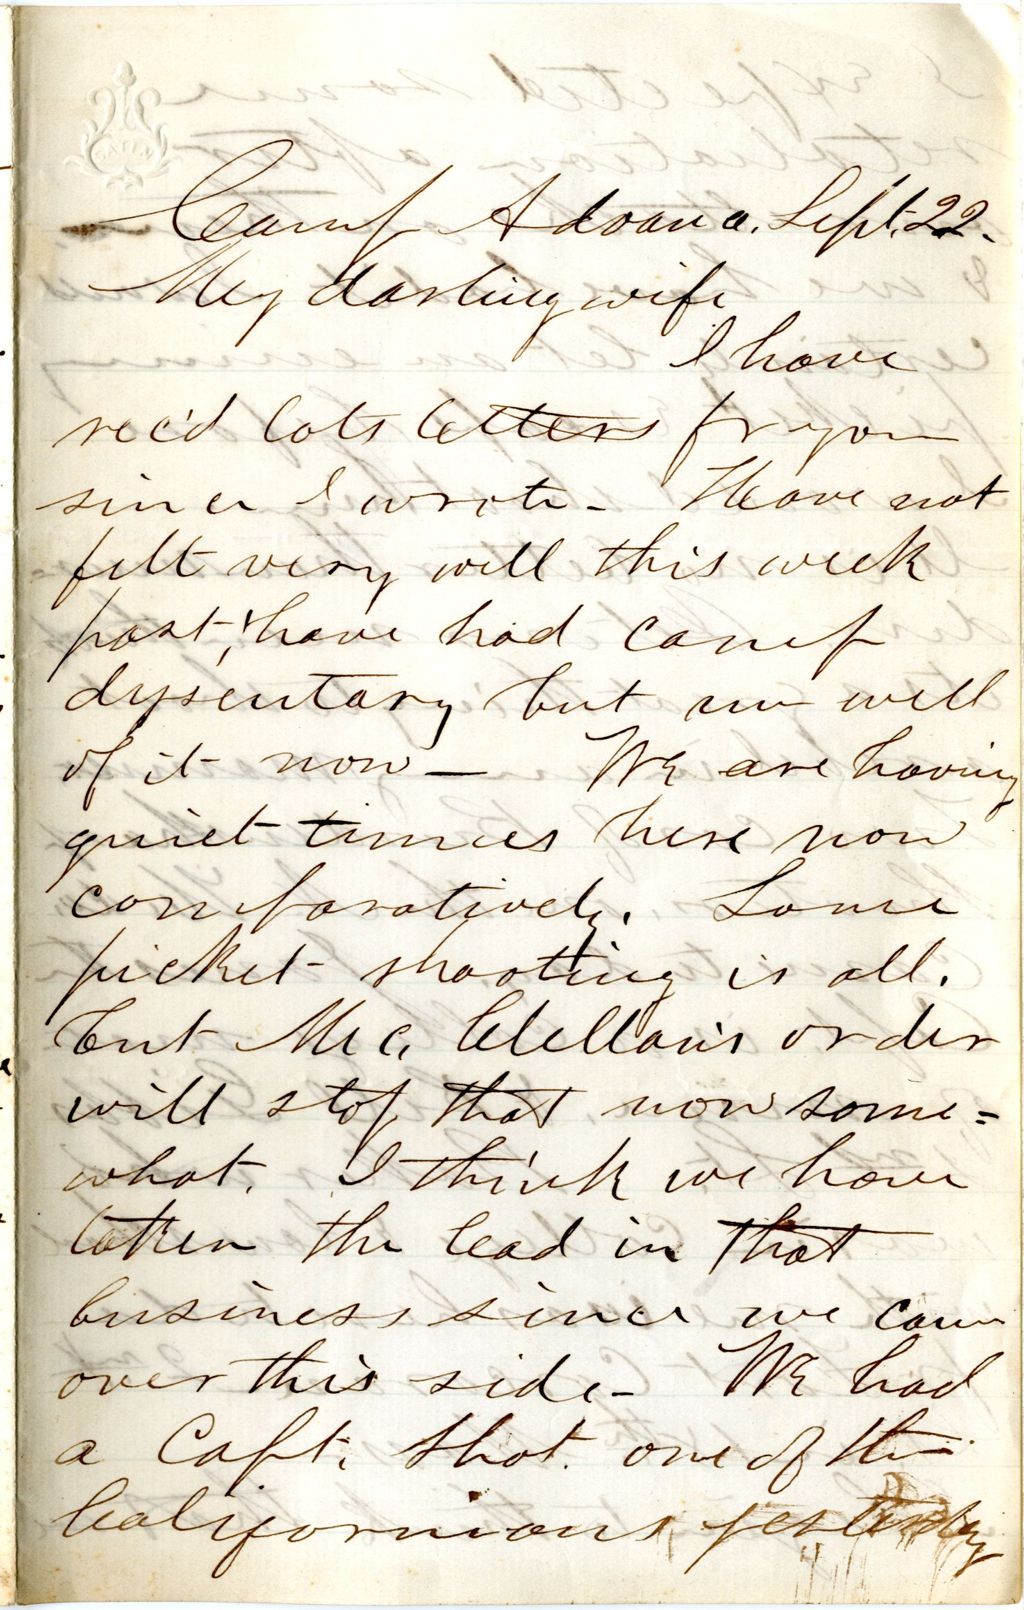 SATIN
Camp Advance. Sept. 22.
My darling wife
I have
rec'd lots letters fr you
since I wrote - Have not
felt very well this week
past, have had camp
dysentary but am well
of it now — We are having
quiet times here now
comparatively. Some
picket shooting is all.
but McClellan's order
will stop that now some=
what. I think we have
taken the lead in that
business since we came
over this side - We had
a Capt. shot. one of the
Californians yesterday